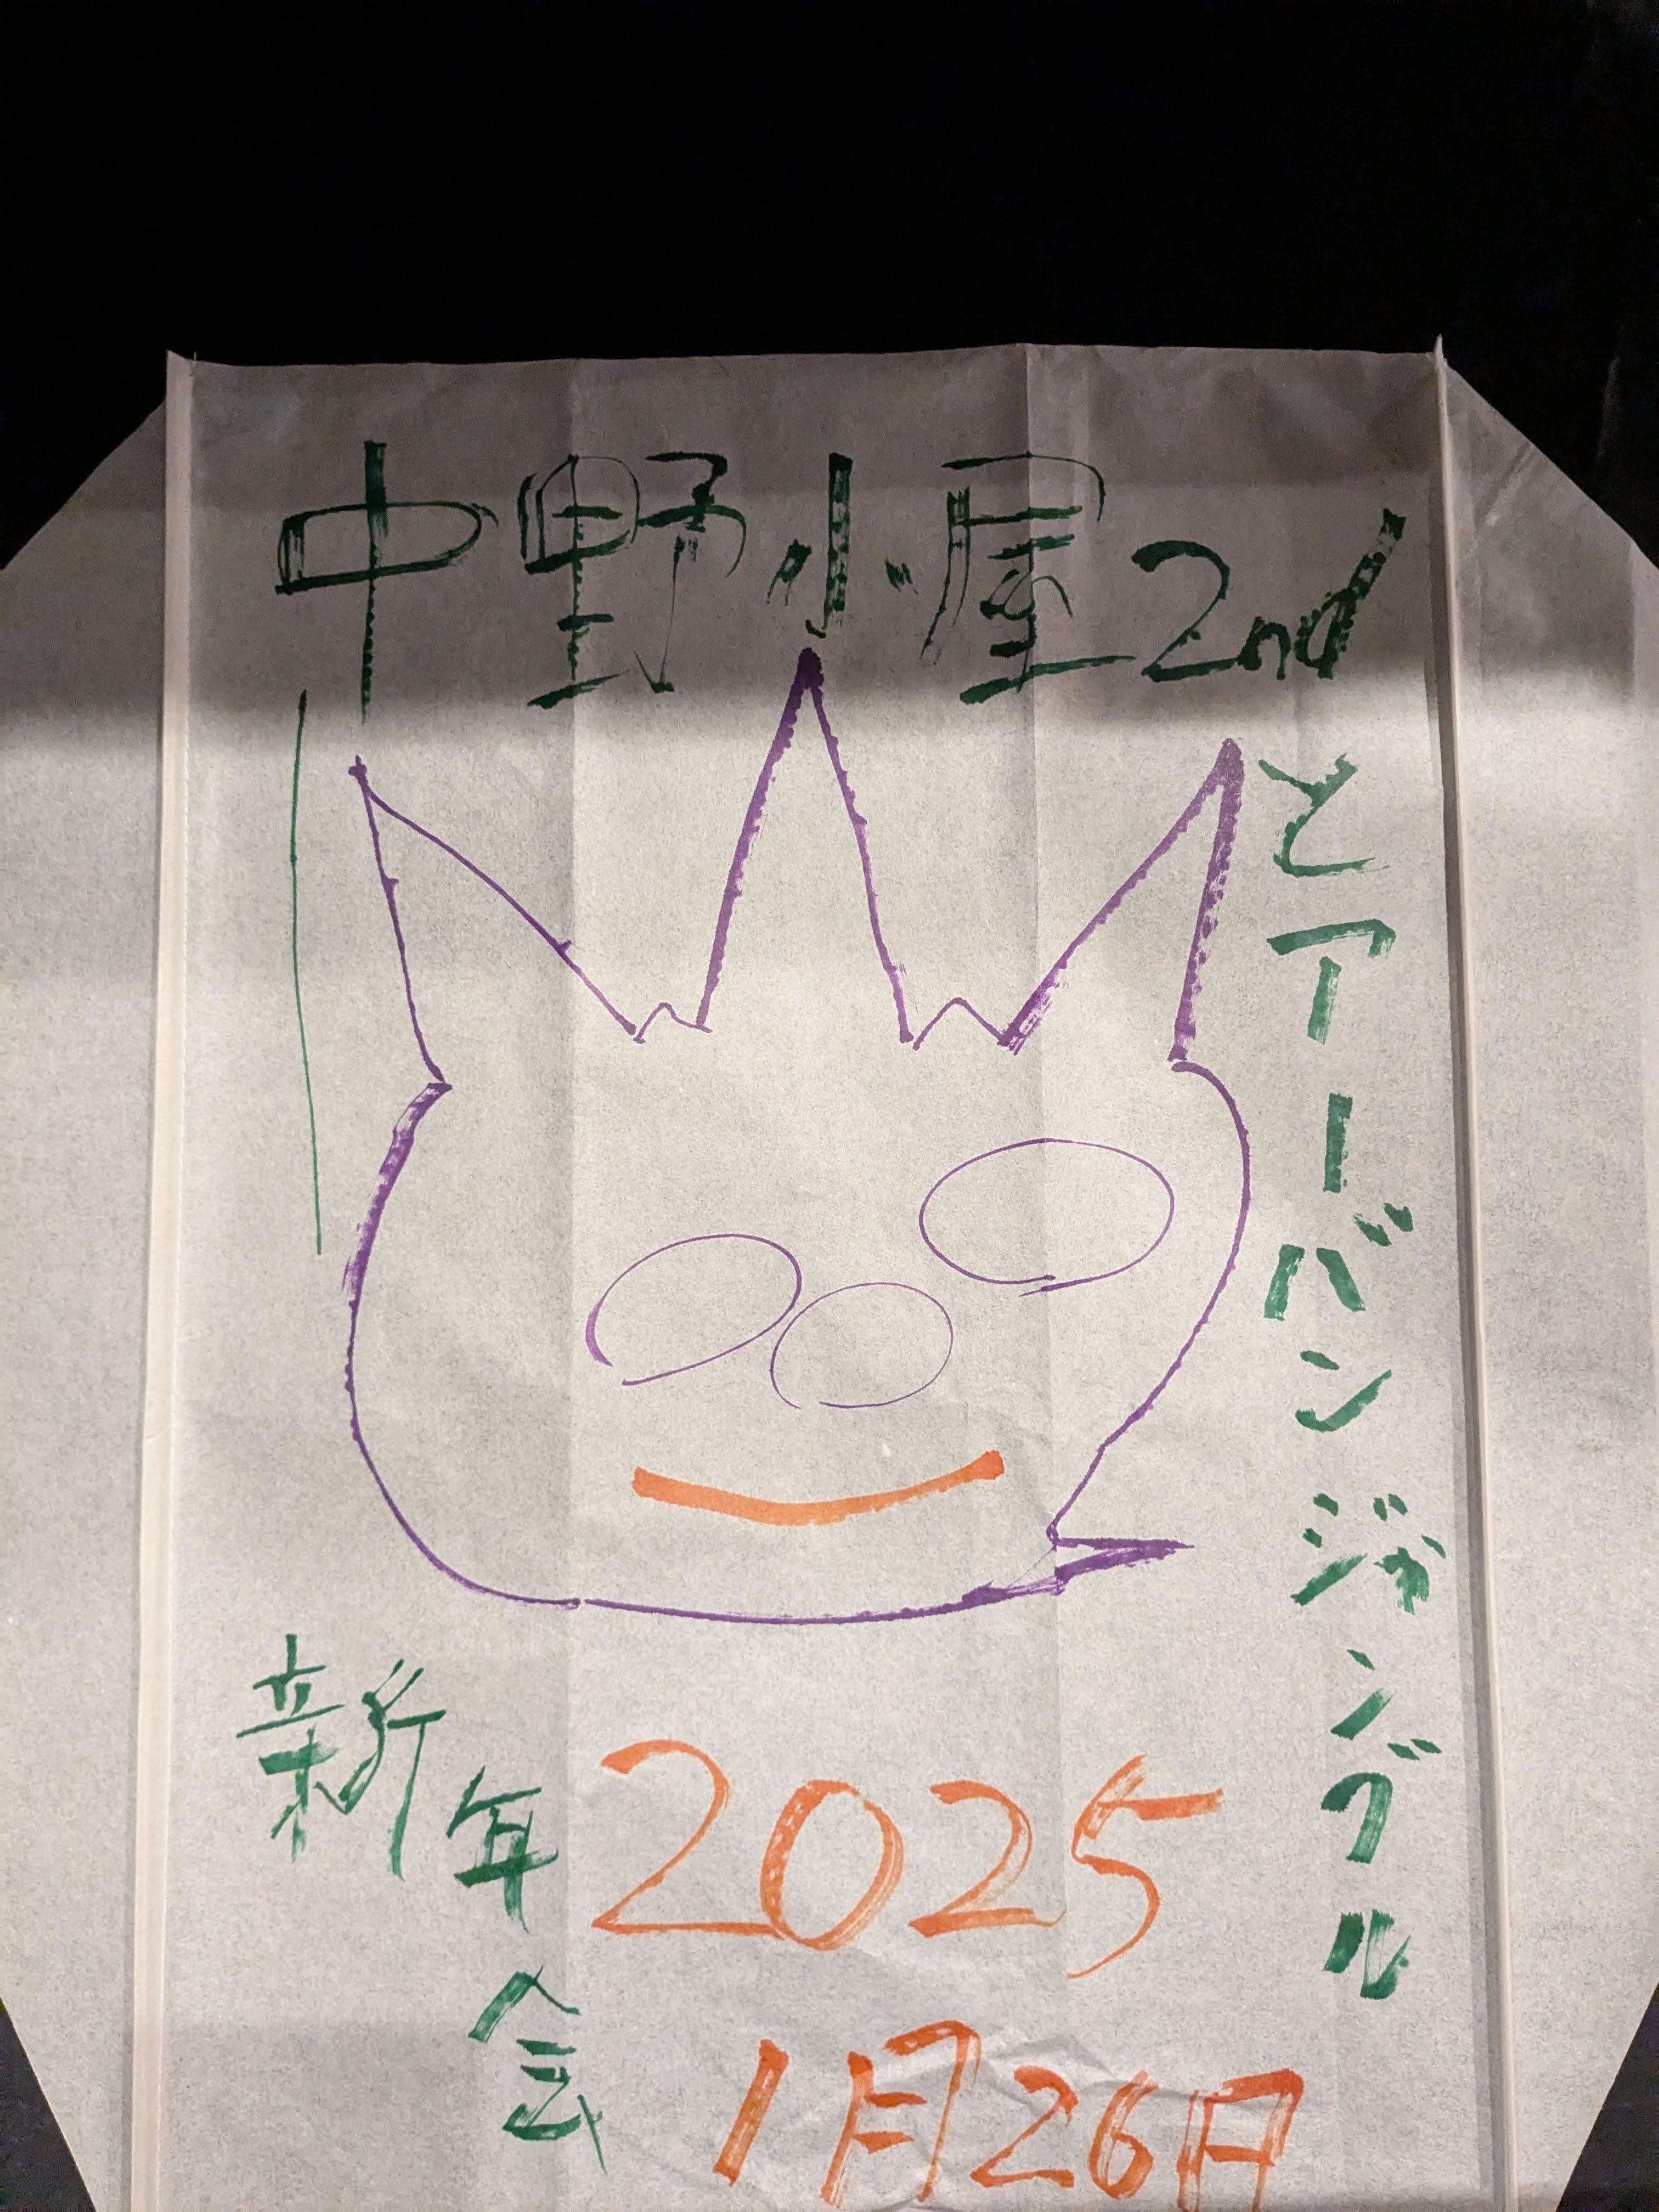 中野小屋2nd
とアーバンジャングル
新年会
2025
1月26日